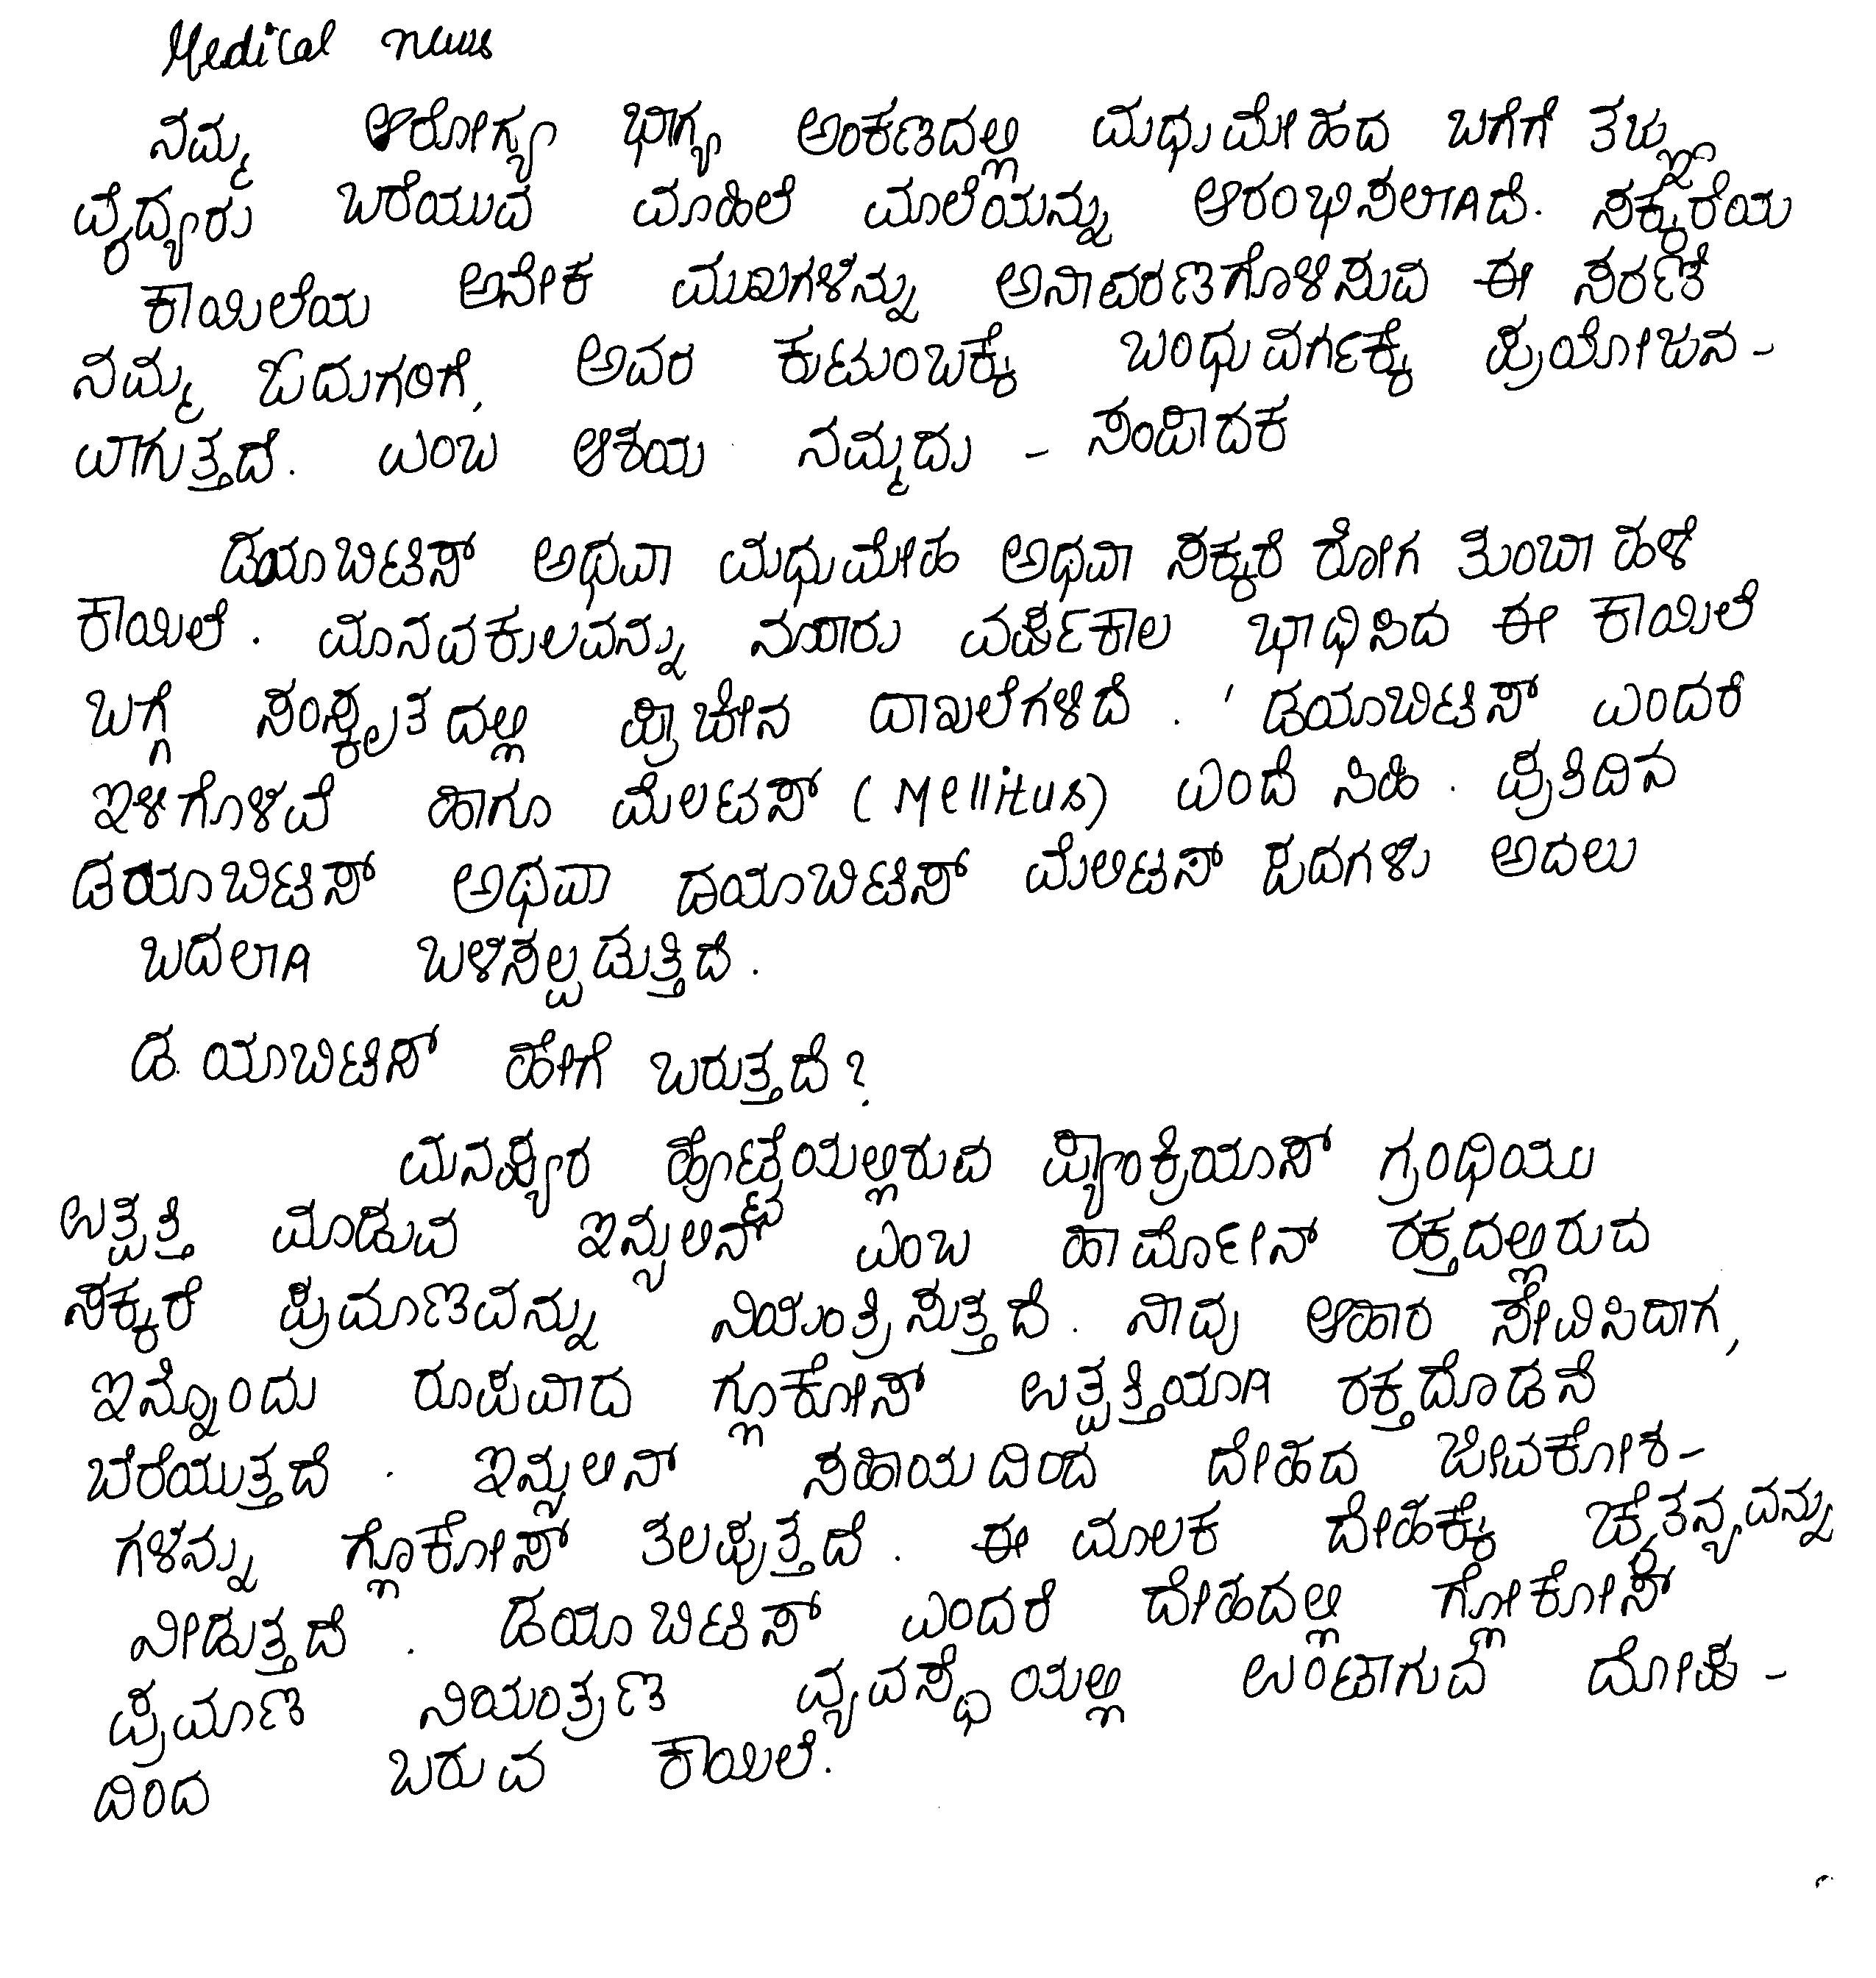 Medical news
ನಮ್ಮ ಆರೋಗ್ಯ ಭಾಗ್ಯ ಅಂಕಣದಲ್ಲಿ ಮಧುಮೇಹದ ಬಗೆಗೆ ತಜ್ಞ
ವೈದ್ಯರು ಬರೆಯುವ ಮಾಹಿತೆ ಮಾಲೆಯನ್ನು ಆರಂಭಿಸಲಾಗಿದೆ. ಸಕ್ಕರೆಯ
ಕಾಯಿಲೆಯ ಅನೇಕ ಮುಖಗಳನ್ನು ಅನಾವರಣಗೊಳಿಸುವ ಈ ಸರಣಿ
ನಮ್ಮ ಓದುಗರಿಗೆ, ಅವರ ಕುಟುಂಬಕ್ಕೆ ಬಂಧುವರ್ಗಕ್ಕೆ ಪ್ರಯೋಜನ-
ವಾಗುತ್ತದೆ. ಎಂಬ ಆಶಯ ನಮ್ಮದು - ಸಂಪಾದಕ
ಡಯಾಬಿಟಿಸ್ ಅಥವಾ ಮಧುಮೇಹ ಅಥವಾ ಸಕ್ಕರೆ ರೋಗ ತುಂಬಾ ಹಳೆ
ಕಾಯಿಲೆ. ಮಾನವಕುಲವನ್ನು ನೂರಾರು ವರ್ಷಕಾಲ ಭಾಧಿಸಿದ ಈ ಕಾಯಿಲೆ
ಬಗ್ಗೆ ಸಂಸ್ಕೃತದಲ್ಲಿ ಪ್ರಾಚೀನ ದಾಖಲೆಗಳಿದೆ. ' ಡಯಾಬಿಟಿಸ್ ಎಂದರೆ
ಇಳಿಗೊಳವೆ ಹಾಗೂ ಮೆಲಟಸ್ (Mellitus) ಎಂದೆ ಸಿಹಿ. ಪ್ರತಿದಿನ
ಡಯಾಬಿಟಿಸ್ ಅಥವಾ ಡಯಾಬಿಟಿಸ್ ಮೆಲಿಟಸ್ ಪದಗಳು ಅದಲು
ಬದಲಾಗಿ ಬಳಿಸಲ್ಪಡುತ್ತಿದೆ.
ಡಯಾಬಿಟಿಸ್ ಹೇಗೆ ಬರುತ್ತದೆ?
ಮನಷ್ಯರ ಹೊಟ್ಟೆಯಲ್ಲಿರುವ ಪ್ಯಾಂಕ್ರಿಯಾಸ್ ಗ್ರಂಥಿಯು
ಉತ್ಪತ್ತಿ ಮಾಡುವ ಇನ್ಸುಲಿನ್ ಎಂಬ ಹಾರ್ಮೋನ್ ರಕ್ತದಲ್ಲಿರುವ
ಸಕ್ಕರೆ ಪ್ರಮಾಣವನ್ನು ನಿಯಂತ್ರಿಸುತ್ತದೆ. ನಾವು ಆಹಾರ ಸೇವಿಸಿದಾಗ,
ಇನ್ನೊಂದು ರೂಪವಾದ ಗ್ಲೂಕೋಸ್ ಉತ್ಪತ್ತಿಯಾಗಿ ರಕ್ತದೊಡನೆ
ಬೆರೆಯುತ್ತದೆ. ಇನ್ಸುಲಿನ್ ಸಹಾಯದಿಂದ ದೇಹದ ಜೀವಕೋಶ-
ಗಳನ್ನು ಗ್ಲೊಕೋಸ್ ತಲಪುತ್ತದೆ. ಈ ಮೂಲಕ ದೇಹಕ್ಕೆ ಚೈತನ್ಯವನ್ನು
ನೀಡುತ್ತದೆ. ಡಯಾಬಿಟಿಸ್ ಎಂದರೆ ದೇಹದಲ್ಲಿ ಗ್ಲೋಕೋಸ್
ಪ್ರಮಾಣ ನಿಯಂತ್ರಣ ವ್ಯವಸ್ಥೆಯಲ್ಲಿ ಉಂಟಾಗುವ ದೋಷ-
ದಿಂದ ಬರುವ ಕಾಯಿಲೆ.